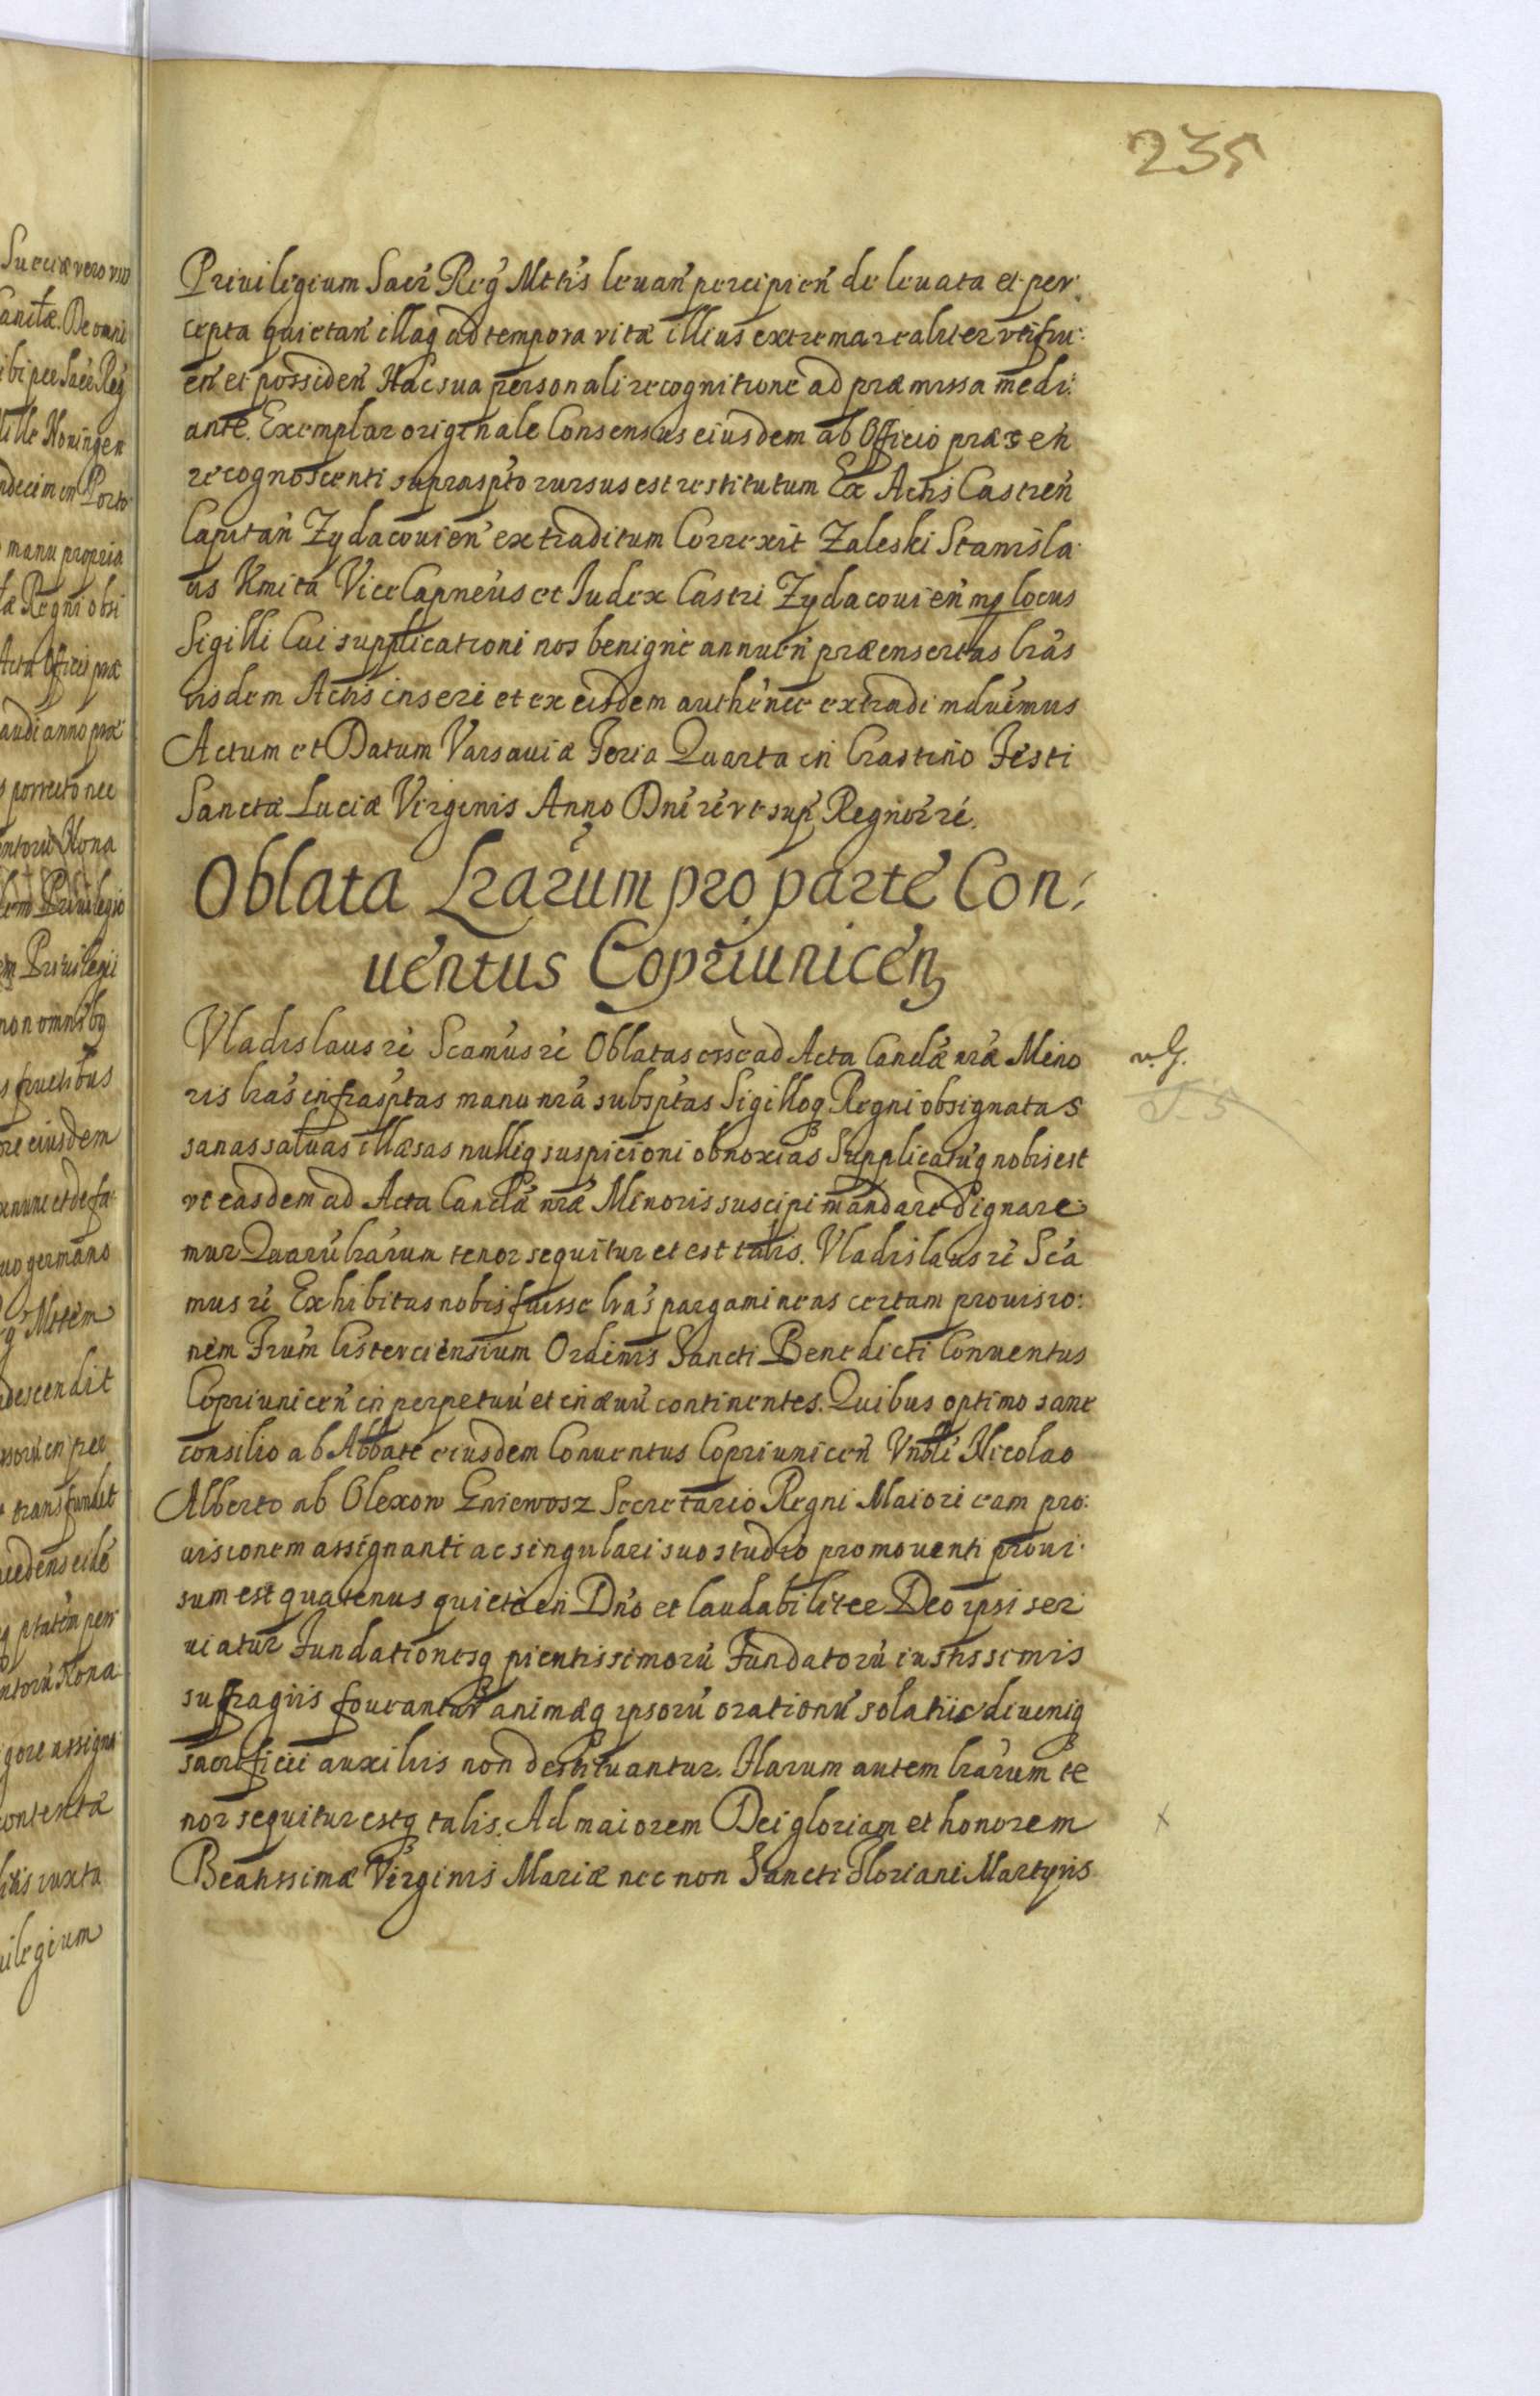 235
Priuilegium Sacr Reg Mttis leuan percipien de leuata et per
cepta quietan illaq ad tempora vitæ illius extrema realiter vtifru:
en et possiden Hac sua personali recognitione ad præmissa medi:
ante. Exemplar originale Consensus eiusdem ab Officio præsen
recognoscenti suprasptо rursus est restitutum Ex Actis Castren
Capitan Zydacouien extraditum Correxit Zaleski Stanisla
us Kmita ViceCapneus et Iudex Castri Zydacouien mp locus
Sigilli Cui supplicationi nos benigne annuen præinsertas lras
iisdem Actis inseri et ex eisdem authentice extradi mduimus
Actum et Datum Varsauiæ Feria Quarta in Crastino Festi
Sanctæ Luciæ Virginis Anno Dni rz vt sup Regnorz rz.
Oblata Lrarum pro parte Con:
uentus Copriunicen
Vladislaus rz Scamus rz Oblatas esse ad Acta Canclæ nræ Mino
ris lras infrasptas manu nra subsptas Sigilloq Regni obsignatas
sanas saluas illæsas nulliq suspicioni obnoxias Supplicatuq nobis est
vt easdem ad Acta Canclæ nræ Minoris suscipi mandare Dignare
mur Quaru lrarum tenor sequitur et est talis. Vladislaus rz Sca
mus rz Exhibitas nobis fuisse lras pargamineas certam prouisio:
nem Frum Cisterciensium Ordinis Sancti Benedicti Conuentus
Copriunicen in perpetuu et in æuu continentes. Quibus optimo sane
consilio ab Abbate eiusdem Conuentus Copriunicen Vnbli Nicolao
Alberto ab Olexow Gniewosz Secretario Regni Maiori eam pro:
uisionem assignanti ac singulari suo studio promouenti proui:
sum est quatenus quiete in Dno et laudabiliter Deo ipsi ser
uiatur Fundationesq pientissimoru Fundatoru iustissimis
sufragiis foueantur animæq ipsoru orationu solatiis diuiniq
sacrificii auxiliis non destituantur. Harum autem lrarum te
nor sequitur estq talis. Ad maiorem Dei gloriam et honorem
Beatissimæ Virginis Mariæ nec non Sancti Floriani Martyris